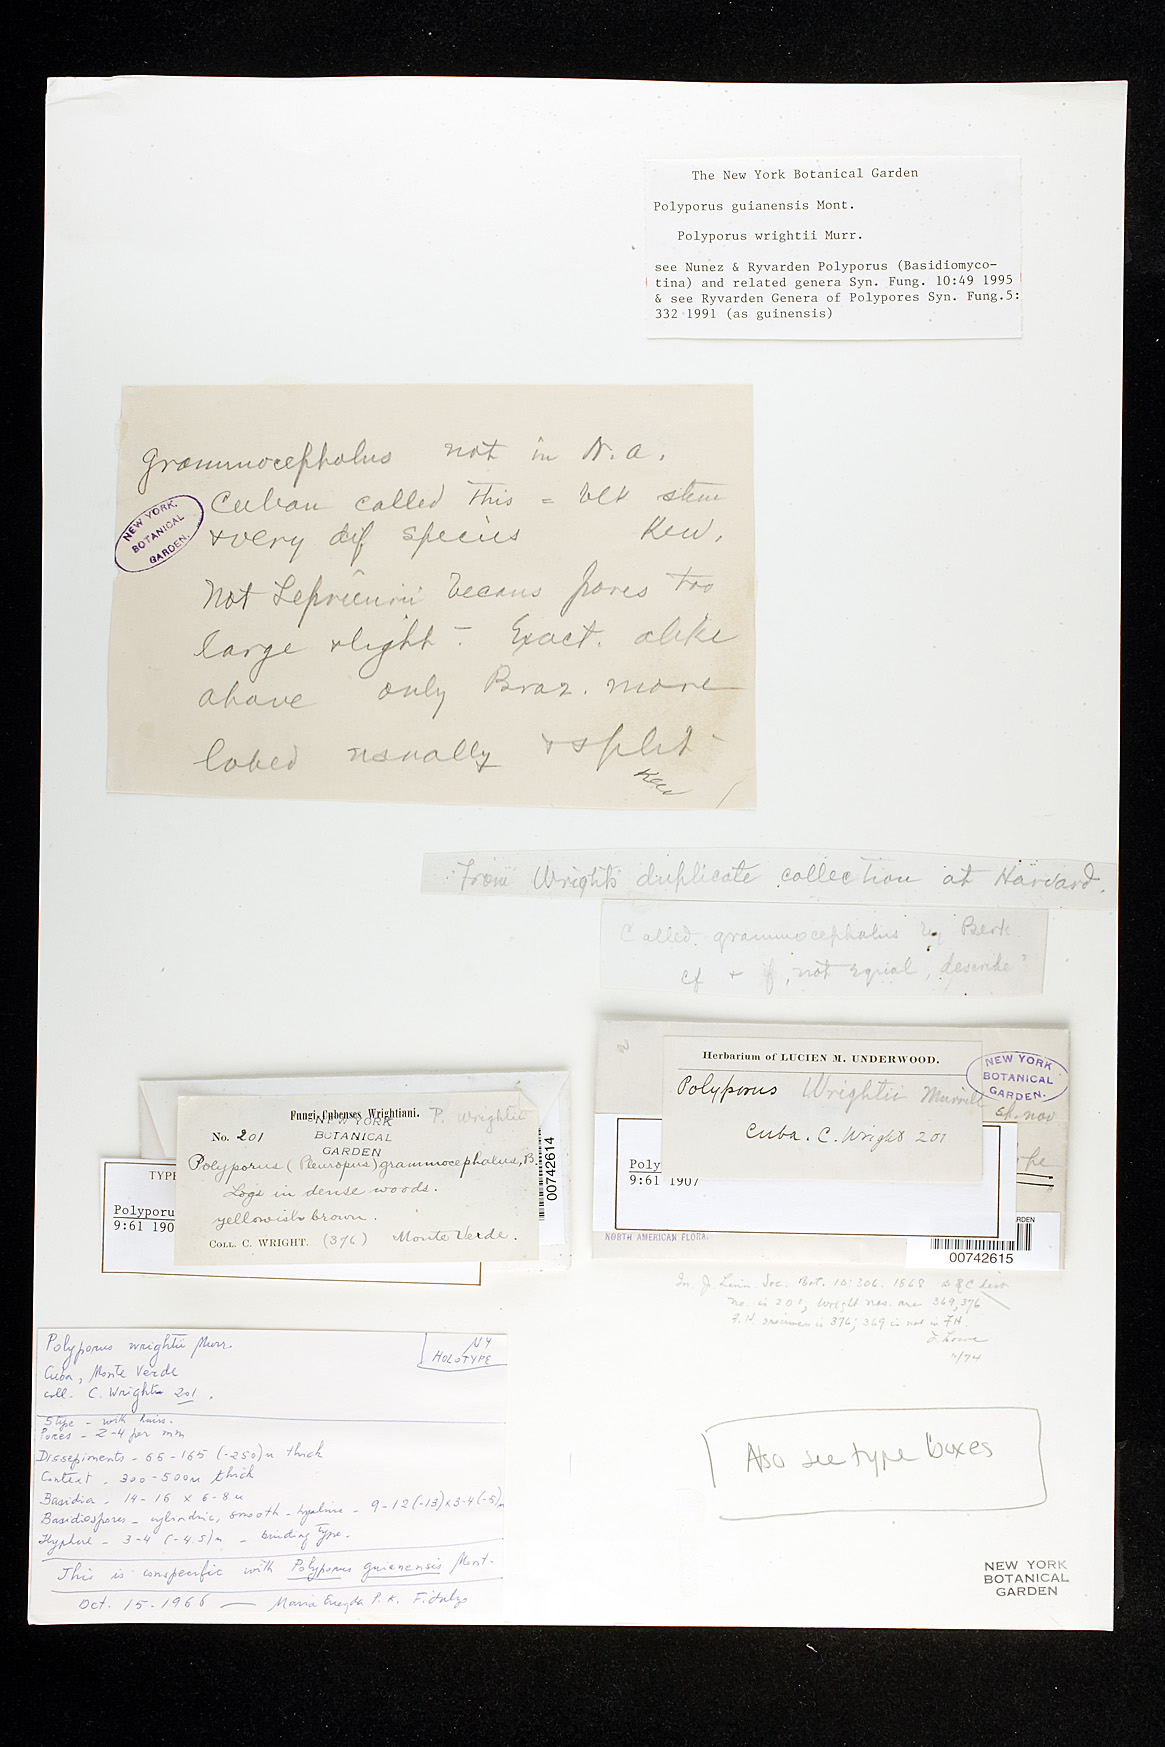 The New York Botanical Garden
Polyporus guianensis Mont.
Polyporus wrightii Murr.
see Nunez & Ryvarden Polyporus (Basidiomyco-
tina) and related genera Syn. Fung. 10:49 1995
& see Ryvarden Genera of Polypores Syn. Fung.5:
332 1991 (as guinensis)
grammocephalus not in N.A.
Cuban called this = blk stem
& very dif species Kew.
NEW YORK
BOTANICAL
GARDEN.
Not Leprieurii becaus pores too
large & light - Exact. alike
above only Braz. more
lobed usually & split
Kew
From Wright's duplicate collection at Harvard.
Called grammocephalus by Berk.
cf & if, not equal, describe
Herbarium of LUCIEN M. UNDERWOOD.
Polyporus Wrightii Murrill
sp. nov
Cuba. C. Wright 201
NEW YORK
BOTANICAL
GARDEN.
Poly
9:61 1907
NORTH AMERICAN FLORA.
RDEN
00742615
Fungi Cubenses Wrightiani. P. Wrightii
NEW YORK
BOTANICAL
GARDEN
No. 201
Polyporus (Pleuropus) grammocephalus, B.
Logs in dense woods.
yellowish brown.
COLL. C. WRIGHT. (376) Monte Verde.
00742614
TYPE
Polyporu
9:61 190
In J. Linn. Soc. Bot. 10:306. 1868 B & C list
no. is 201, Wright nos. are 369, 376
F.H. specimen is 376; 369 is not in FH.
J. Lowe
11/74
Polyporus wrightii Murr.
NY
HOLOTYPE
Cuba, Monte Verde
coll. C. Wright 201.
Stipe - with hairs.
Pores - 2-4 per mm
Dissepiments - 65-165 (-250)u thick
Context - 300-500u thick
Basidia - 14-16 x 6-8u
Basidiospores - cylindric, smooth - hyaline - 9-12(-13)x3-4(-5)u
Hyphae - 3-4 (-4.5)u - binding type.
This is conspecific with Polyporus guianensis Mont.
Oct. 15-1966 — Maria Eneyda P. K. Fidalgo
Also see type boxes
NEW YORK
BOTANICAL
GARDEN